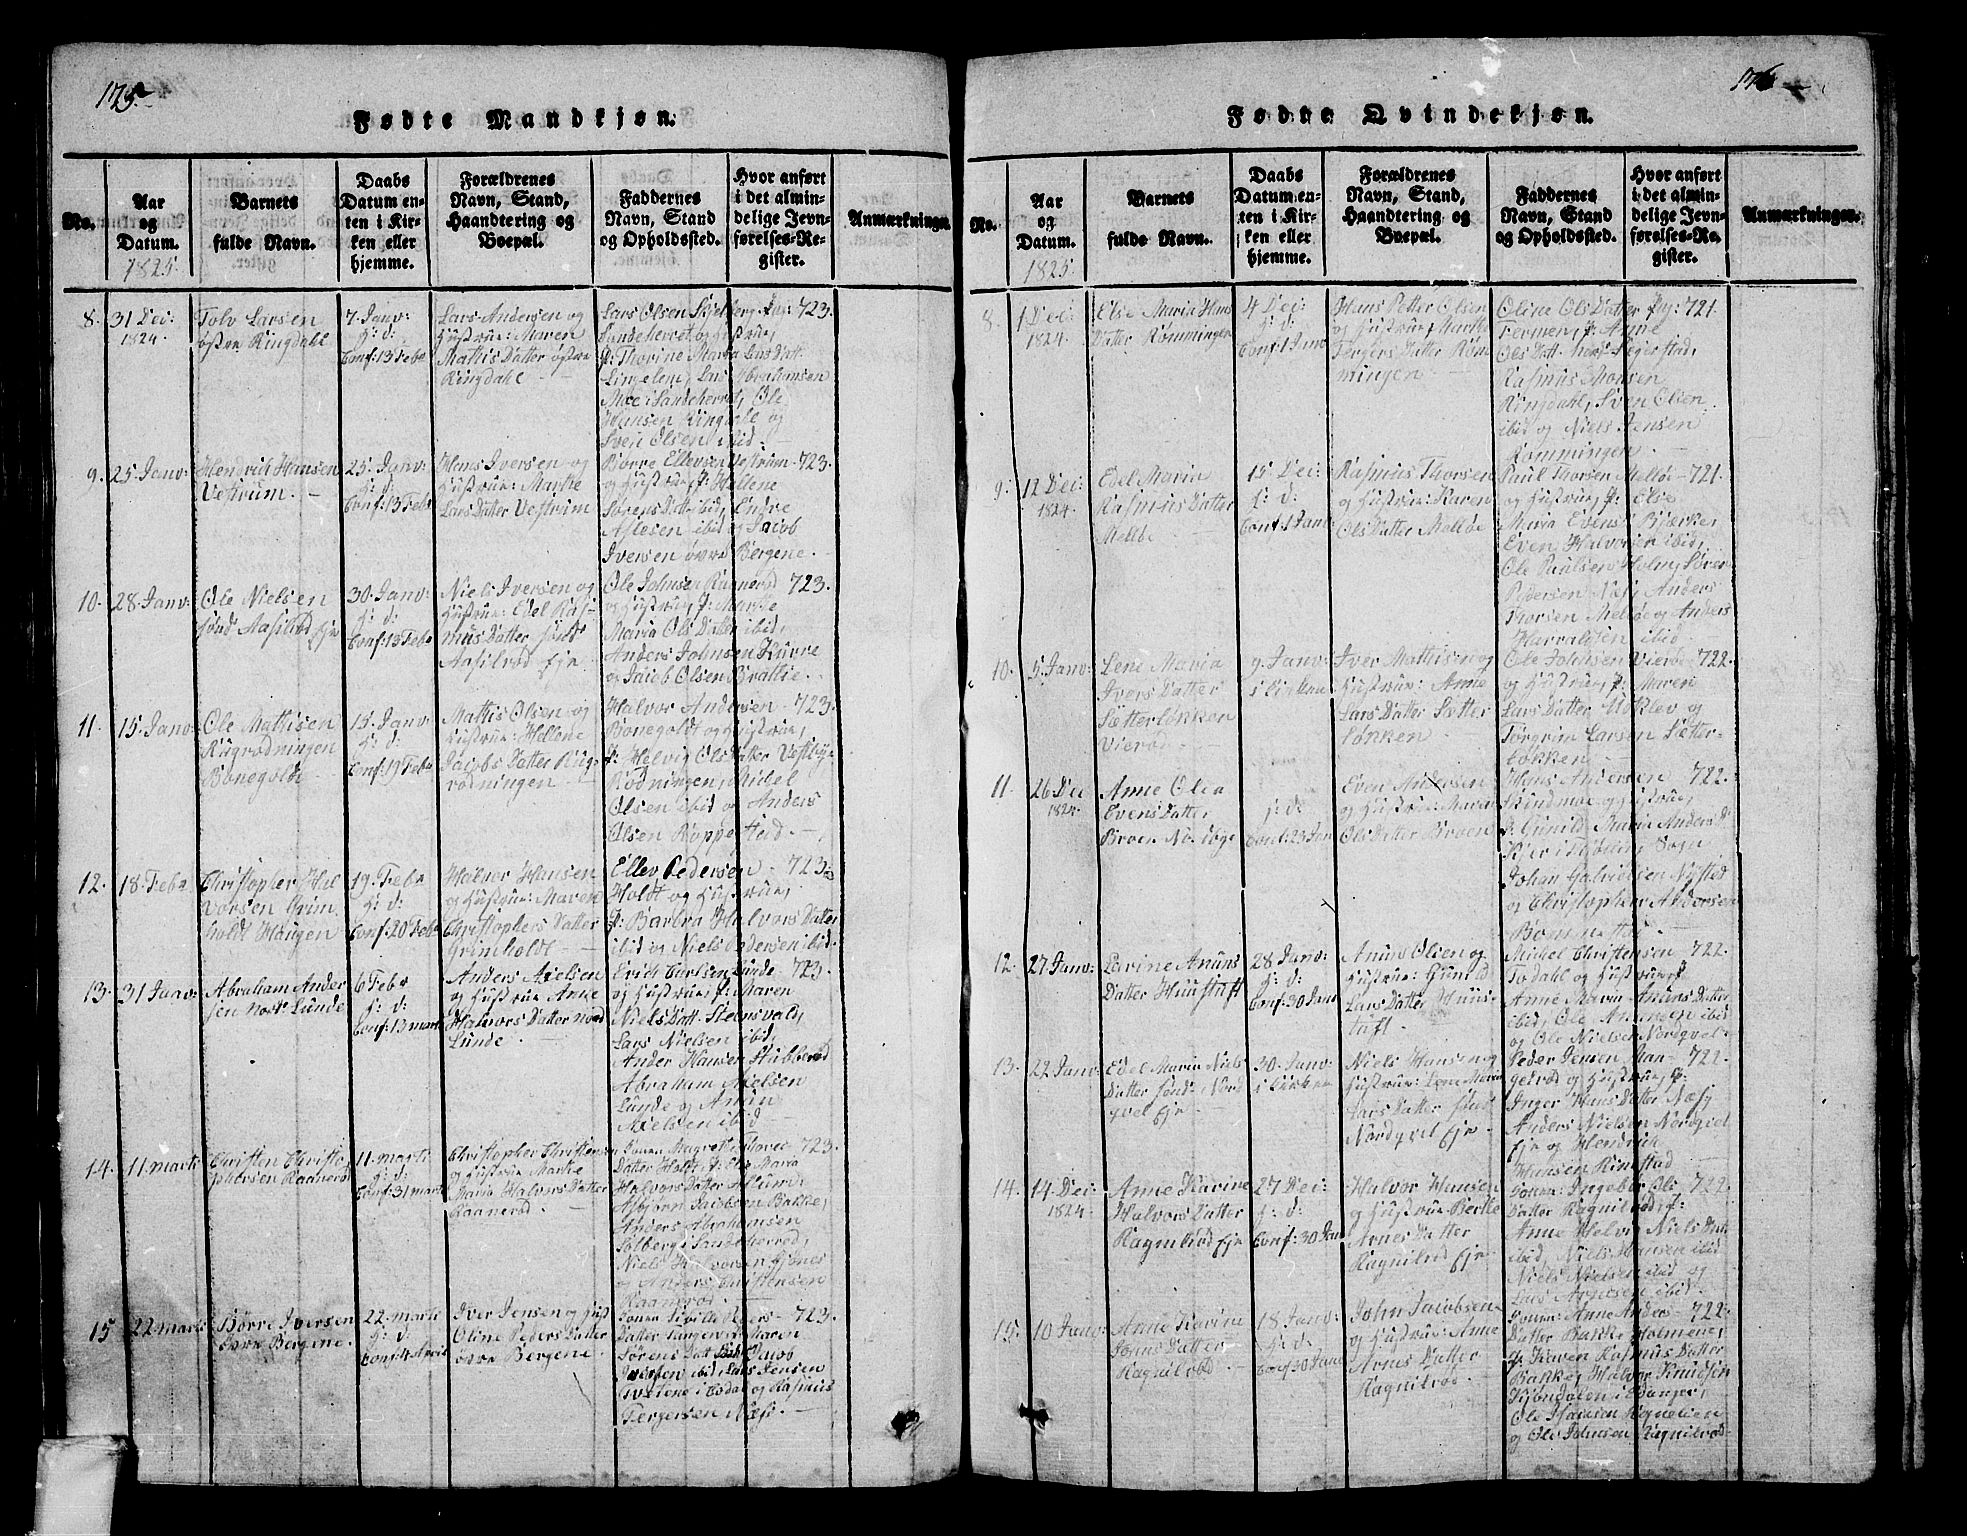 175
Fødte Mandkjøn.
No.
Aar
og
Datum.
1825.
Barnets
fulde Navn.
Daabs
Datum en-
ten i Kir-
ken eller
hjemme.
Forældrenes
Navn, Stand,
Haandtering og
Boepæl.
Faddernes
Navn, Stand
og Opholdssted.
Hvor anført
i det almin-
delige Jevn-
førelses-Re-
gister.
Anmærkninger.
8.
31 Dec:
1824.
Tolv Larsen
østre Ringdahl
7 Janv:
h: d:
Conf: 13 Feb
Lars Andersen og
Hustrue: Maren
Mathis Datter østre
Ringdahl
Lars Olsen Skjelberg
Sandeherret og Hustrue,
P: Thorine Maria Lars Datt:
Lars Abrahamsen
Moe i Sandeherret, Ole
Hansen Ringdahl og
Sven Olsen ibid.
723.
9.
25 Janv:
Hendrich Hansen
Vestrum.
25 Janv:
h: d:
Conf: 13 Feb
Hans Iversen og
Hustrue: Marthe
Lars Datter Vestrum
Børre Ellevsen Vestrum
og Hustrue, P: Hellene
Sørens Datt: ibid, Endre
Aslesen ibid og Jacob
Iversen øvre Bergene.
723.
10.
28 Janv:
Ole Nielsen
sønd Aasilrød Eje
30 Janv:
h: d:
Conf: 13 Feb
Niels Iversen og
Hustrue: Edel Ras-
mus Datter sønd
Aasilrød Eje
Ole Johnsen
og Hustrue, P: Marthe
Maria Ols Datter ibid,
Anders Johnsen
og Jacob Olsen Brattie.
723.
11.
15 Janv:
Ole Mathisen
Rugrødningen
Bonegoldt
15 Janv:
h: d:
Conf: 19 Feb
Mathis Olsen og
Hustrue: Hellene
Jacobs Datter Rug-
rødningen
Halvor Andersen
Bonegoldt og Hustrue,
P: Helvig Ols Datter
Rødningen, Mickel
Olsen ibid og Anders
Olsen Roppestad.
723.
12.
18 Feb
Christopher Hal
vorsen Grim
holdt Haugen
19 Feb
h: d:
Conf: 20 Feb
Halvor Hansen
og Hustrue: Maren
Christophers Datter
Grimholdt
Ellev Pedersen
Holdt og Hustrue,
P: Barbra Halvors Datter
ibid og Niels Pedersen ibid.
723
13.
31 Janv:
Abraham Ander
sen nordr Lunde
6 Feb
h: d:
Conf: 13 marti
Anders Nielsen
og Hustrue Anne
Halvors Datter nord
Lunde
Erich Carlsen Lunde
og Hustrue, P: Maren
Niels Datt: Steensvald,
Lars Nielsen ibid,
Ander Hansen
Abraham Nielsen
Lunde og
Nielsen ibid
723.
14.
11 marti
Christen Christo
phersen Raanerød
11 marti
h: d:
Conf: 31 marti
Christopher Christensen
og Hustrue Marthe
Maria Halvors Datter
Raanerød.
Magrethe
Datter Holdt, P: Else Maria
Halvors Datter
Asbjørn Jacobsen Bakke,
Anders Abrahamsen
Solberg i Sandeherred,
Niels Halvorsen
og Anders Christensen
Raanerød.
723.
15
22 marti
Børre Iversen
øvre Bergene.
22 marti
h: d:
Conf: 4 April
Iver Jensen og Hust
Oline Peders Datter
øvre Bergene.
Sibille Peders
Datter P: Maren
Sørens Datt: Jacob
Iversen ibid, Lars Jensen
i og Rasmus
Tergersen Næss.
723.
176
Fødte Qvindekjøn.
No.
Aar
og
Datum.
1825.
Barnets
fulde Navn.
Daabs
Datum en-
ten i Kir-
ken eller
hjemme.
Forældrenes
Navn, Stand,
Haandtering og
Boepæl.
Faddernes
Navn, Stand
og Opholdssted.
Hvor anført
i det almin-
delige Jevn-
førelses-Re-
gister.
Anmærkninger.
8.
1 Dec:
1824.
Else Maria Hans
Datter Rømmingen
4 Dec:
h: d:
Conf: 1 Janv
Hans Petter Olsen
og Hustrue, Marthe
Tergers Datter Røm
mingen
Oline Ols Datter
Fermen, P: Anne
Ols Datt:
Rasmus Monsen
Ringdahl, Sven Olsen
ibid og Niels Jensen
Rømmingen
721.
9.
12 Dec:
1824.
Edel Maria
Rasmus Datter
Melløe
15 Dec:
h: d:
Conf: 1 Janv
Rasmus Thorsen
og Hustrue: Karen
Ols Datter Melløe
Paul Thorsen Melløe
og Hustrue, P: Else
Maria Evens Bjærke,
Even Halvorsen ibid,
Ole Paulsen Holm, Søren
Pedersen Næss, Anders
Thorsen Melløe og Anders
Harraldsen ibid.
721.
10.
5 Janv:
Lene Maria
Ivers Datter
Sætterløkken
Vierød
9 Janv:
i Kirken
Iver Mathisen og
Hustrue: Anne
Lars Datter Sætter
løkken.
Ole Johnsen Vierød
og Hustrue, P: Maren
Lars Datter Unklev og
Torgrim Larsen Sætter-
løkken
722.
11.
26 Dec
1824.
Anne Olea
Evens Datter
Broen
h: d:
Conf: 23 Jan
Even Andersen
og Hustrue: Maria
Ols Datter Broen
Hans Andersen
Skindmoe og Hustrue,
P: Gunild Maria Anders D:
Kjær i Sogn
Johan
og Christopher Andersen
722.
12.
27 Janv:
Larine Anuns
Datter Huustuft
28 Janv:
h: d:
Conf: 30 Janv
Anuns Olsen og
Hustrue: Gunild
Lars Datter Huus-
tuft.
Michel Christensen
Todahl og Hustrue, P:
Anne Maria Anuns Datter
ibid, Ole Andersen ibid
og Ole Nielsen Nordqvel
722.
13.
22 Janv:
Edel Maria Niels
Datter sønd Nord
qvel Eje
30 Janv:
i Kirken
Niels Hansen og
Hustrue: Lene Maria
Lars Datter sønd
Nordqvel Eje
Peder Jensen
og Hustrue, P:
Inger Hans Datter Næss,
Anders Nielsen Nordqvel
Eje og Hendrich
Hansen Rimstad
722.
14.
14 Dec:
1824.
Anne Karine
Halvors Datter
Ragnilrød Eje
27 Dec:
h: d:
Conf: 30 Jan
Halvor Hansen
og Hustrue Berthe
Arnes Datter
Ragnilrød Eje
Ingebor Ols
Datter Ragnilrød, P:
Anne Helvig Niels Datt:
ibid, Niels Hansen ibid
Niels Nielsen ibid og
Lars Arnesen ibid.
722.
15.
10 Janv:
Anne Karine
Johns Datter
Ragnilrød
18 Janv:
h: d:
Conf: 30 Janv
John Jacobsen
og Hustrue: Anne
Arnes Datter
Ragnilrød
Anne Anders
Datter Bakke Holmene,
P: Karen Rasmus Datter
Bakke, Halvor Knudsen
Kjøndalen i
Ole Hansen
og Ole Johnsen Ragnilrød
722.